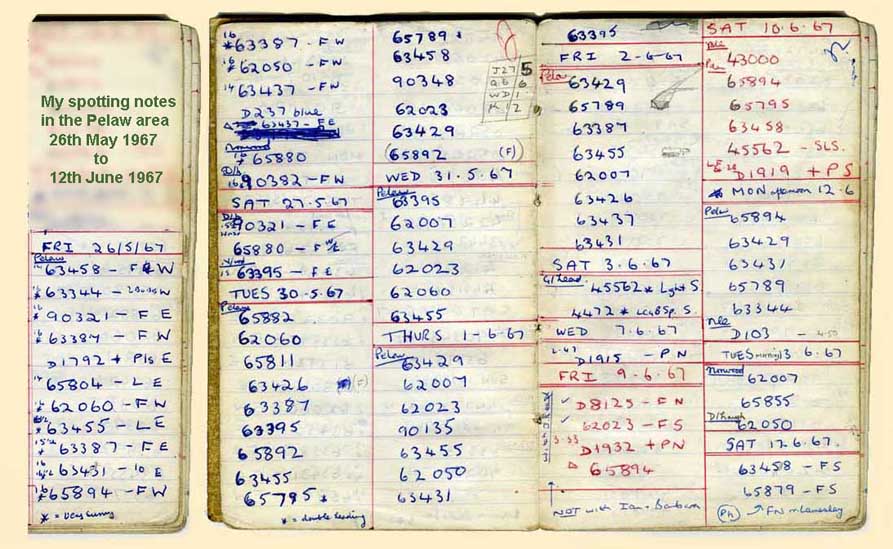 My spotting notes
in the Pelaw area
26th May 1967
to
12th June 1967
FRI 26/5/67
Pelaw
63458 - F W
63344 -
90321 - F E
63387 - F W
D1792 + Pls E
65804 - L E
62060 - F W
63455 - L E
63387 - F E
63431 - 10 E
65894 - F W
* = very sunny
63387 - F W
62050 - F W
63437 - F W
D237 blue
63437 - F E
Norwood
65880
90382 - F W
SAT 27.5.67
90321 - F E
65880 - F W
63395 - F E
TUES 30.5.67
Pelaw
65882
62060
65811
63426 (F)
63387
63395
65892
63455
65795 *
* = double heading
65789
63458
90348
62023
63429
(65892 (F)
J27 5
Q6 6
WD 1
K1 2
WED 31.5.67
Pelaw
63395
62007
63429
62023
62060
63455
THURS 1-6-67
Pelaw
63429
62007
62023
90135
63455
62050
63431
63395
FRI 2-6-67
Pelaw
63429
65789
63387
63455
62007
63426
63437
63431
SAT 3.6.67
G/head
45562 * Lght S.
4472 * S.
WED 7.6.67
D1915 - P N
FRI 9.6.67
D8125 - F N
62023 - F S
D1932 + P N
65894
NOT with Ian + Barbara
SAT 10.6.67
43000
65894
65795
63458
45562 - SLS.
D1919 + P S
MON afternoon 12.6
Pelaw
65894
63429
63431
65789
63344
Ncle
D103 - 4.50
TUES morning 13 6.67
Norwood
62007
65855
62050
SAT 17.6.67.
63458 - F S
65879 - F S
(Ph) FN in Lamesley